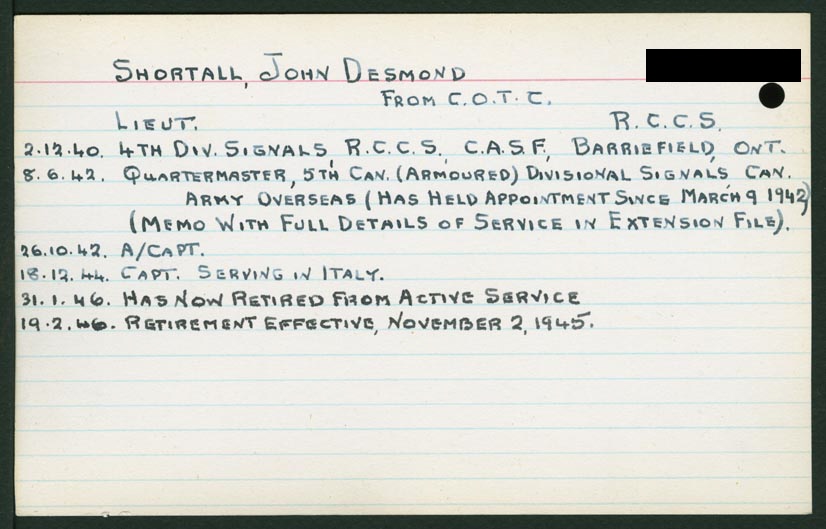 SHORTALL, JOHN DESMOND
FROM C.O.T.C.
LIEUT. R.C.C.S.
2.12.40. 4TH DIV. SIGNALS, R.C.C.S., C.A.S.F., BARRIEFIELD, ONT.
8.6.42. QUARTERMASTER, 5TH CAN. (ARMOURED) DIVISIONAL SIGNALS CAN.
ARMY OVERSEAS (HAS HELD APPOINTMENT SINCE MARCH 9 1942)
(MEMO WITH FULL DETAILS OF SERVICE IN EXTENSION FILE).
26.10.42. A/CAPT.
18.12.44. CAPT. SERVING IN ITALY.
31.1.46. HAS NOW RETIRED FROM ACTIVE SERVICE
19.2.46. RETIREMENT EFFECTIVE, NOVEMBER 2, 1945.